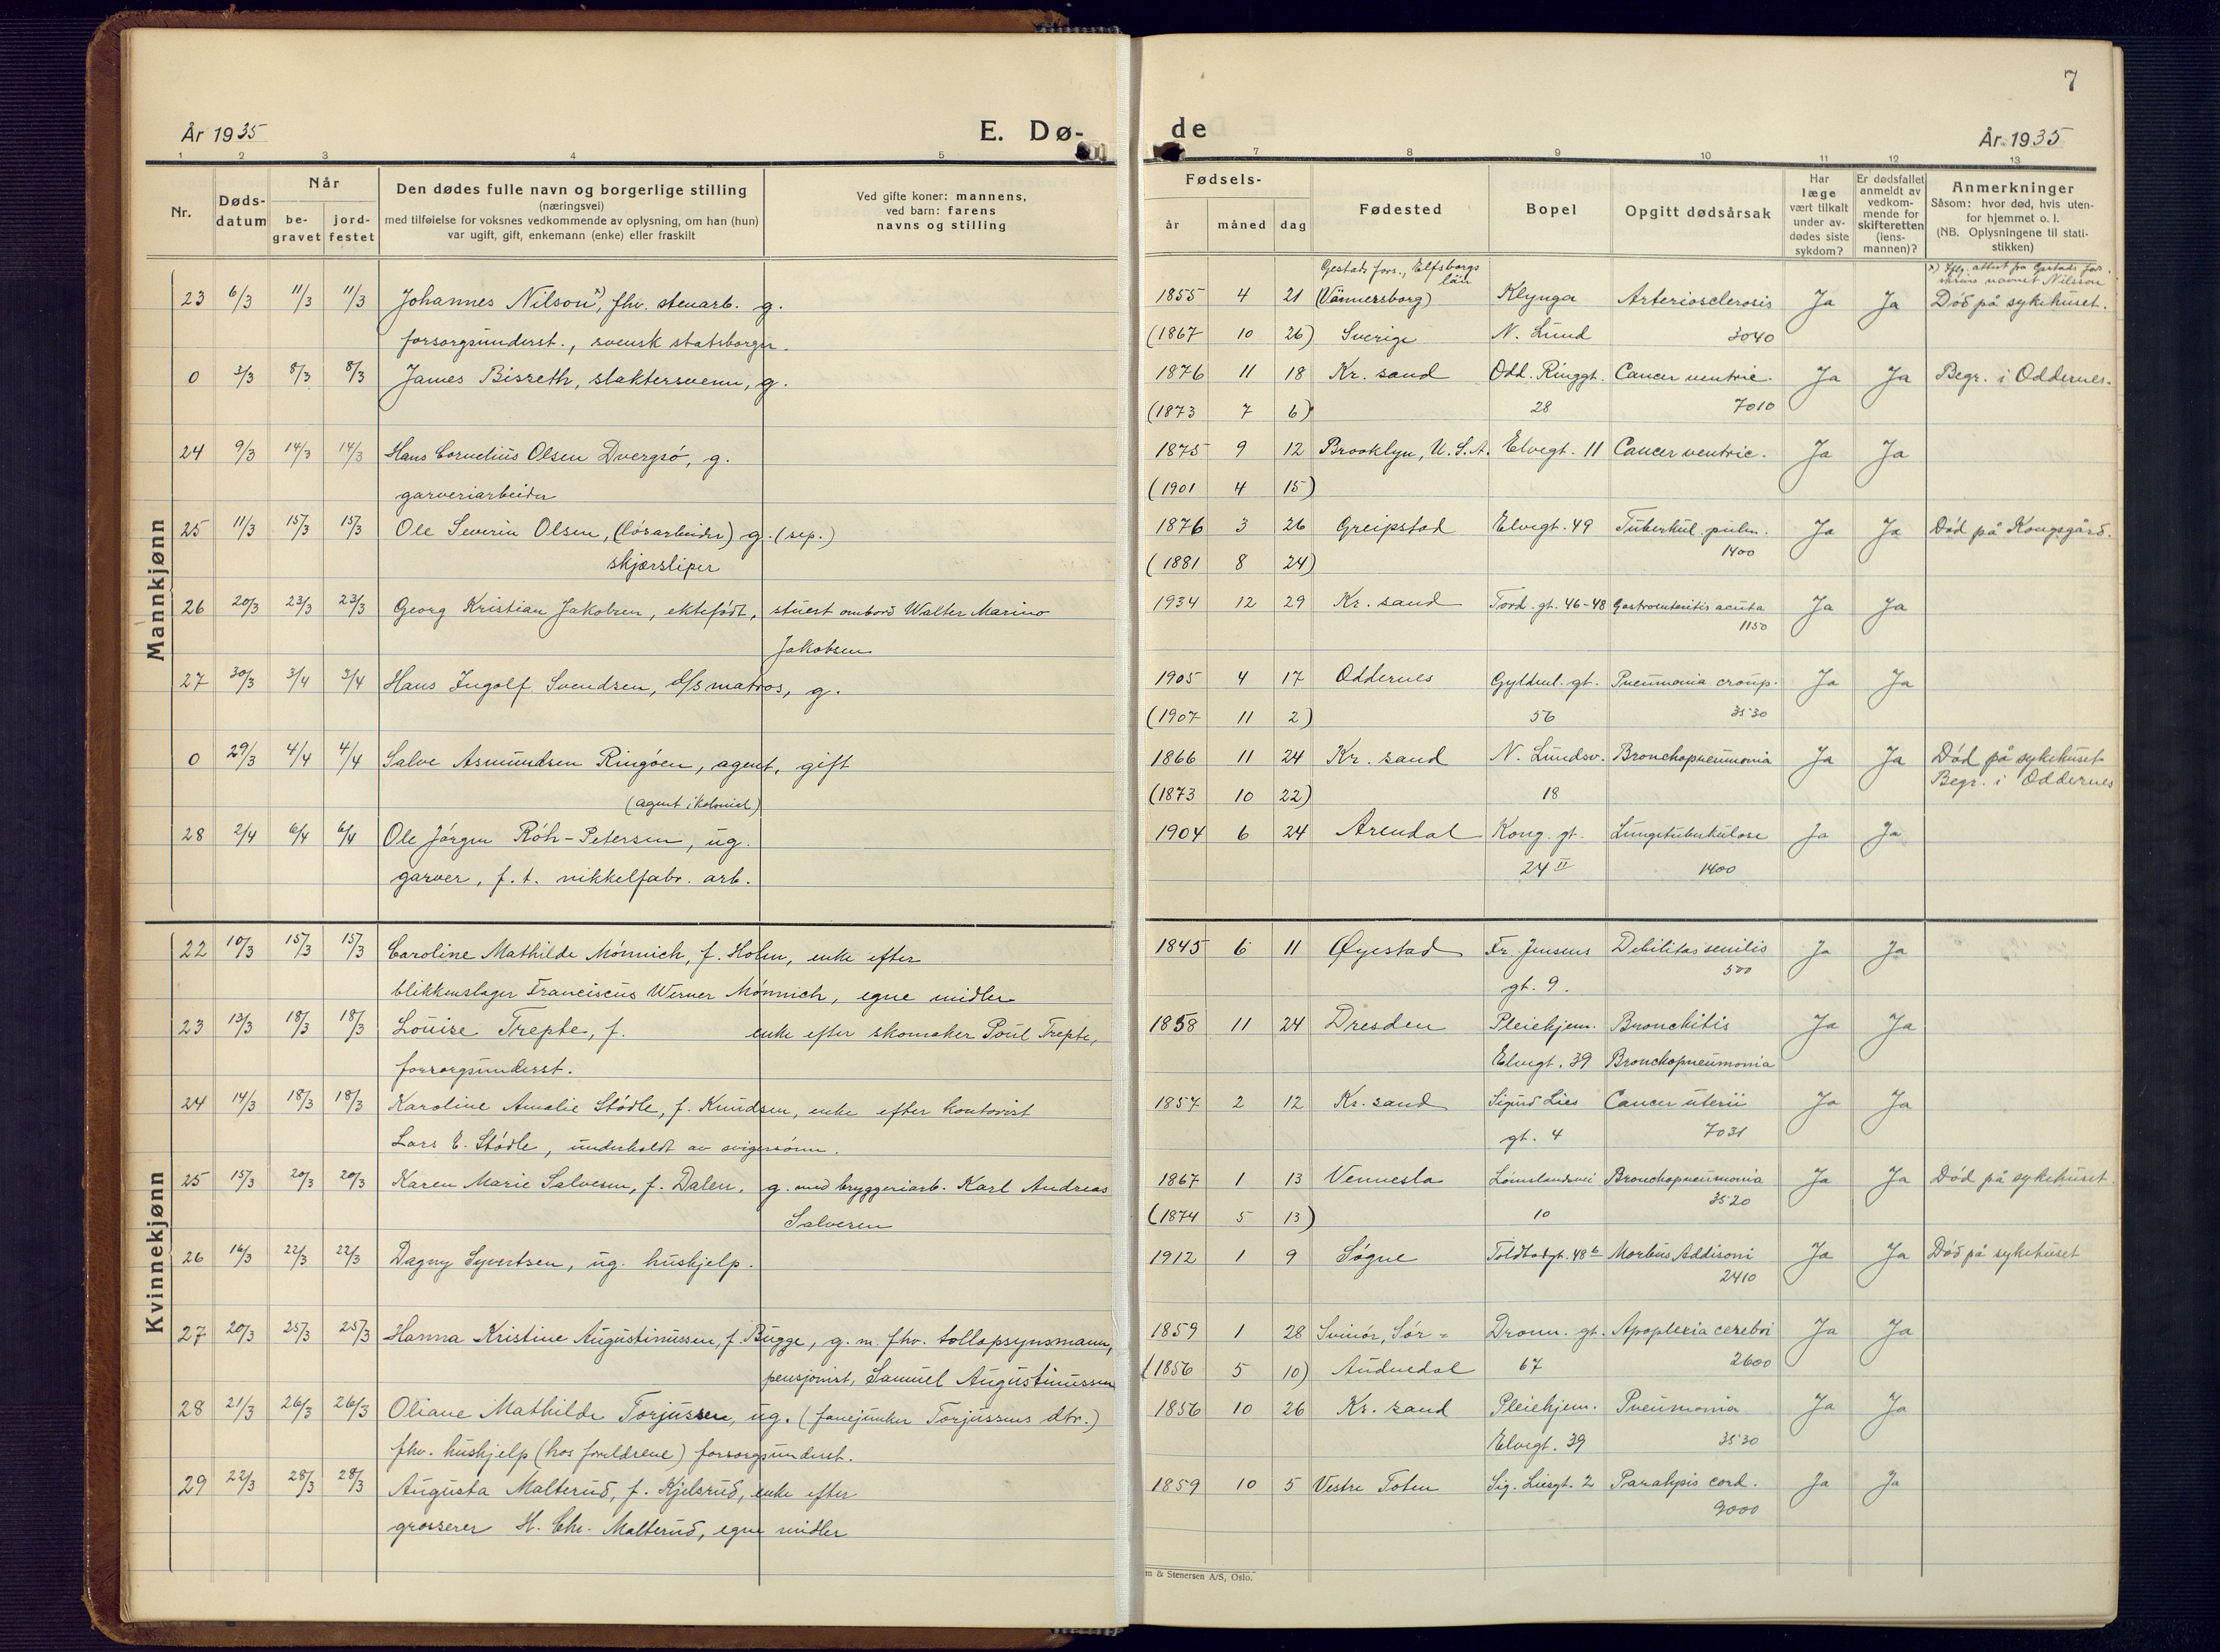 7
År 1935
E. Dø-
de
År 1935
1 2 3 4 5
7 8 9 10 11 12 13
Nr.
Døds-
datum
Når
be-
gravet
jord-
festet
Den dødes fulle navn og borgerlige stilling
(næringsvei)
med tilføielse for voksnes vedkommende av oplysning, om han (hun)
var ugift, gift, enkemann (enke) eller fraskilt
Ved gifte koner: mannens,
ved barn: farens
navns og stilling
Fødsels-
år måned dag
Fødested
Bopel
Opgitt dødsårsak
Har
læge
vært tilkalt
under av-
dødes siste
sykdom?
Er dødsfallet
anmeldt av
vedkom-
mende for
skifteretten
(lens-
mannen)?
Anmerkninger
Såsom: hvor død, hvis uten-
for hjemmet o. l.
(NB. Oplysningene til stati-
stikken)
Mannkjønn
Gestads fors., Elfsborgs
län
x) Iflg. attest fra Gestads fors.
skrives navnet Nilsson
23 6/3 11/3 11/3 Johannes Nilson x), fhv. stenarb. g. 1855 4 21 (Vännersborg) Klynga Arteriosclerosis Ja Ja Död på sykehuset.
forsorgsunderst., svensk statsborger. (1867 10 26) Sverige N. Lund 3040
0 3/3 8/3 8/3 James Bisseth, slaktersvenn, g. 1876 11 18 Kr. sand Odd. Ringgt. Cancer ventric. Ja Ja Begr. i Oddernes.
(1873 7 6) 28 7010
24 9/3 14/3 14/3 Hans Cornelius Olsen Dvergsö, g. 1875 9 12 Brooklyn, U.S.A. Elvegt. 11 Cancer ventric. Ja Ja
garveriarbeider (1901 4 15)
25 11/3 15/3 15/3 Ole Severin Olsen, (lösarbeider) g. (sep.) 1876 3 26 Greipstad Elvegt. 49 Tuberkul. pulm. Ja Ja Död på Kongsgård.
skjærsliper (1881 8 24) 1400
26 20/3 23/3 23/3 Georg Kristian Jakobsen, ektefödt, stuert ombord Walter Marino 1934 12 29 Kr. sand Tord. gt. 46-48 Gastroenteritis acuta Ja Ja
Jakobsen 1150
27 30/3 3/4 3/4 Hans Ingolf Svendsen, d/s matros, g. 1905 4 17 Oddernes Gyldenl. gt. Pneumonia croup. Ja Ja
(1907 11 2) 56 3530
0 29/3 4/4 4/4 Salve Asmundsen Ringöen, agent, gift 1866 11 24 Kr. sand N. Lundsv. Bronchopneumonia Ja Ja Död på sykehuset
(agent i kolonial) (1873 10 22) 18 Begr. i Oddernes
28 2/4 6/4 6/4 Ole Jörgen Röh-Petersen, ug. 1904 6 24 Arendal Kong. gt. Lungetuberkulose Ja Ja
garver, f.t. nikkelfabr. arb. 24 II 1400
Kvinnekjønn
22 10/3 15/3 15/3 Caroline Mathilde Mönnich, f. Holm, enke efter 1845 6 11 Øyestad Fr. Jensens Debilitas senilis Ja Ja
blikkenslager Franciscus Werner Mönnich, egne midler gt. 9. 500
23 13/3 18/3 18/3 Louise Trepte, f. enke efter skomaker Poul Trepte, 1858 11 24 Dresden Pleiehjem. Bronchitis Ja Ja
forsorgsunderst. Elvegt. 39 Bronchopneumonia
24 14/3 18/3 18/3 Karoline Amalie Stödle, f. Knudsen, enke efter kontorist 1857 2 12 Kr. sand Sigurd Lies Cancer uterii Ja Ja
Lars E. Stödle, underholdt av svigersönn. gt. 4 7031
25 15/3 20/3 20/3 Karen Marie Salvesen, f. Dalen, g. med bryggeriarb. Karl Andreas 1867 1 13 Vennesla Lömslandsvei Bronchopneumonia Ja Ja Död på sykehuset
Salvesen (1874 5 13) 10 3520
26 16/3 22/3 22/3 Dagny Syvertsen, ug. hushjelp. 1912 1 9 Sögne Toldbodgt. 48 b Morbus Addisoni Ja Ja Död på sykehuset
2410
27 20/3 25/3 25/3 Hanna Kristine Augustinussen, f. Bugge, g. m. fhv. tollopsynsmann, 1859 1 28 Svinör, Sör- Dronn. gt. Apoplexia cerebri Ja Ja
pensjonist, Samuel Augustinussen (1856 5 10) Audnedal 67 2600
28 21/3 26/3 26/3 Oliane Mathilde Torjussen, ug. (fanejunker Torjussens dtr.) 1856 10 26 Kr. sand Pleiehjem. Pneumonia Ja Ja
fhv. hushjelp (hos foreldrene) forsorgsunderst. Elvegt. 39 3530
29 22/3 28/3 28/3 Augusta Malterud, f. Kjelsrud, enke efter 1859 10 5 Vestre Toten Sig. Liesgt. 2 Paralysis cord. Ja Ja
grosserer H. Chr. Malterud, egne midler 9000
m & Stenersen A/S, Oslo.